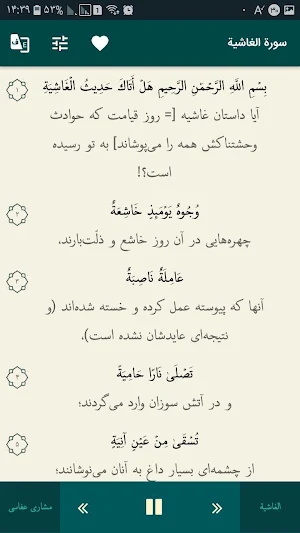 ۱۴:۳۹ ۵۳%
سورة الغاشية
بِسْمِ اللَّهِ الرَّحْمَٰنِ الرَّحِيمِ هَلْ أَتَاكَ حَدِيثُ الْغَاشِيَةِ
۱
آیا داستان غاشیه [= روز قیامت که حوادث
وحشتناکش همه را می‌پوشاند] به تو رسیده
است؟!
وُجُوهٌ يَوْمَئِذٍ خَاشِعَةٌ
۲
چهره‌هایی در آن روز خاشع و ذلّت‌بارند،
عَامِلَةٌ نَاصِبَةٌ
۳
آنها که پیوسته عمل کرده و خسته شده‌اند (و
نتیجه‌ای عایدشان نشده است)،
تَصْلَىٰ نَارًا حَامِيَةً
۴
و در آتش سوزان وارد می‌گردند؛
تُسْقَىٰ مِنْ عَيْنٍ آنِيَةٍ
۵
از چشمه‌ای بسیار داغ به آنان می‌نوشانند؛
الغاشية
مشاری عفاسی